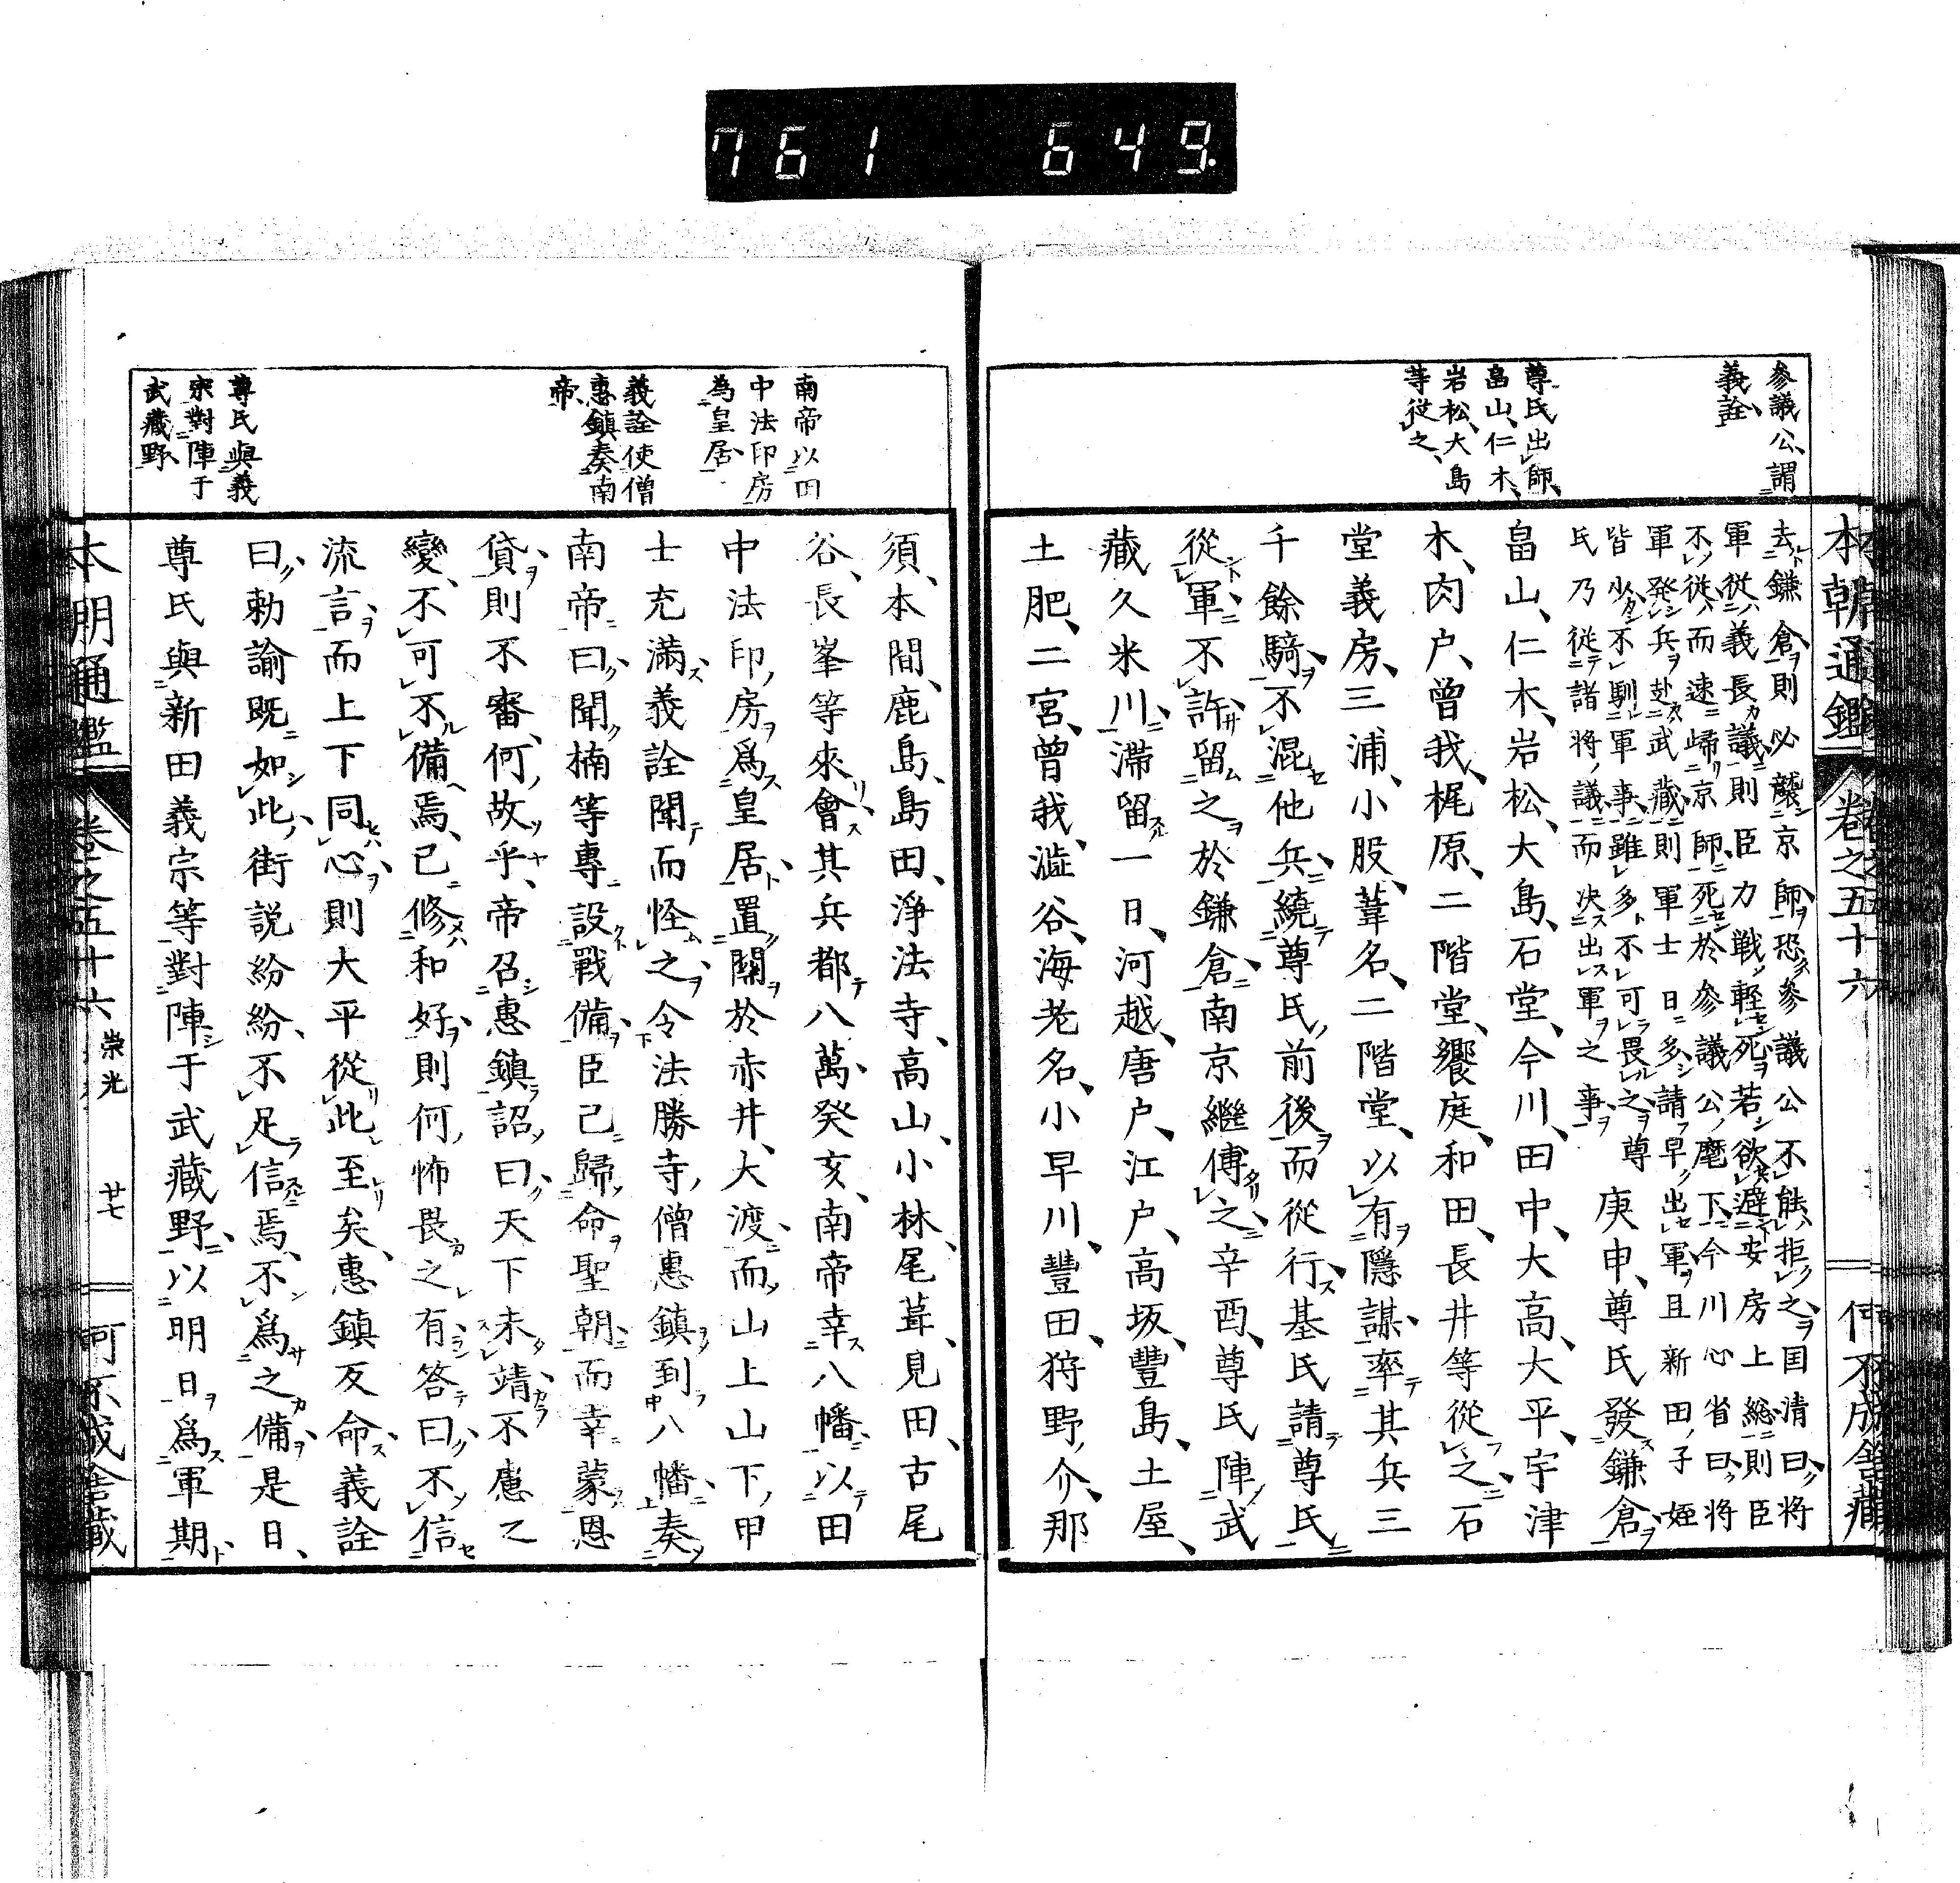 761 649
參議公謂
義詮
尊氏出師
畠山仁木
岩松大島
等從之
本朝通鑑 卷之五十六
去鎌倉則必襲京師恐參議公不能拒之国清曰將
軍從義長議則臣力戰軽死若欲避安房上総則臣
不從而速歸京師死於參議公麾下今川心省曰將
軍発兵赴武藏則軍士日多請早出軍且新田子姪
皆少不馴軍事雖多不可畏之尊
氏乃從諸將議而决出軍之事
庚申尊氏發鎌倉
畠山仁木岩松大島石堂今川田中大高大平宇津
木肉户曾我梶原二階堂饗庭和田長井等從之石
堂義房三浦小股葦名二階堂以有隱謀率其兵三
千餘騎不混他兵繞尊氏前後而從行基氏請尊氏
從軍不許留之於鎌倉南京繼傳之辛酉尊氏陣武
藏久米川滞留一日河越唐户江户高坂豐島土屋
土肥二宮曾我澁谷海老名小早川豐田狩野介那
南帝以田
中法印房
為皇居
義詮使僧
惠鎮奏南
帝
尊氏與義
宗對陣于
武藏野
須本間鹿島島田淨法寺高山小林尾葺見田古尾
谷長峯等來會其兵都八萬癸亥南帝幸八幡以田
中法印房爲皇居置關於赤井大渡而山上山下甲
士充滿義詮聞而怪之令法勝寺僧惠鎮到八幡奏
南帝曰聞楠等專設戰備臣己歸命聖朝而幸蒙恩
貸則不審何故乎帝召惠鎮詔曰天下未靖不慮之
變不可不備焉己修和好則何怖畏之有答曰不信
流言而上下同心則大平從此至矣惠鎮反命義詮
曰勅諭既如此街説紛紛不足信焉不爲之備是日
尊氏與新田義宗等對陣于武藏野以明日爲軍期
崇光
廿七